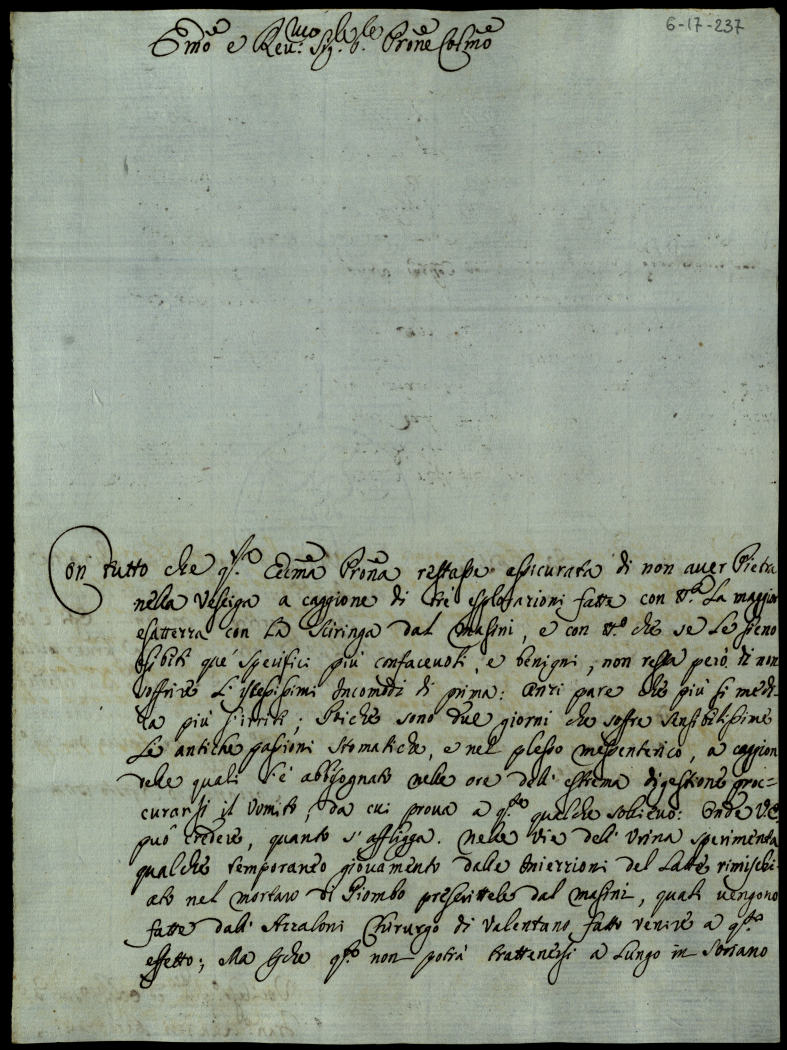 6-17-237
Emõ e Reu.mo Sig.le P.le Prõne Colmõ
Con tutto che q.sta Eccmã Prõna restasse assicurata di non auer Pietra
nella Vessiga a caggione di tre esplorazioni fatte con t.ta La maggior
esattezza con La Sciringa dal Masini, e con t.o che se Le sieno
esibiti que' specifici più confacevoli, e benigni, non resta però di non
soffrire L'istessissimi Incomodi di prima: Anzi pare che più si medi-
ca più s'irriti; Poiche sono due giorni che soffre sensibilissime
Le antiche passioni Stomatiche, e nel plesso messenterico, a caggion
delle quali s'è abbisognato nelle ore dell'estrema digestione proc=
curarsi il Vomito, da cui prova a q.sto qualche sollievo: Onde V.E.
può credere, quanto s'affligga. Nelle vie dell'Urina sperimenta
qualche temporaneo giovamento dalle Iniezzioni del Latte rimischi-
ato nel mortaro di Piombo prescrittele dal Masini, quali vengono
fatte dall'Azzaloni Chirurgo di Valentano, fatto venire a q.sto
effetto; Ma che q.sto non potrà trattenersi a Lungo in Soriano